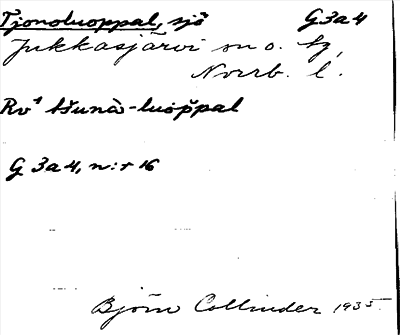 Tjonoluoppal, sjö G3a4
Jukkasjärvi sn o. tg,
Norrb. l.
Rv¹ tšunà-luoppal
G 3a4, n:r 16
Björn Collinder 1935.